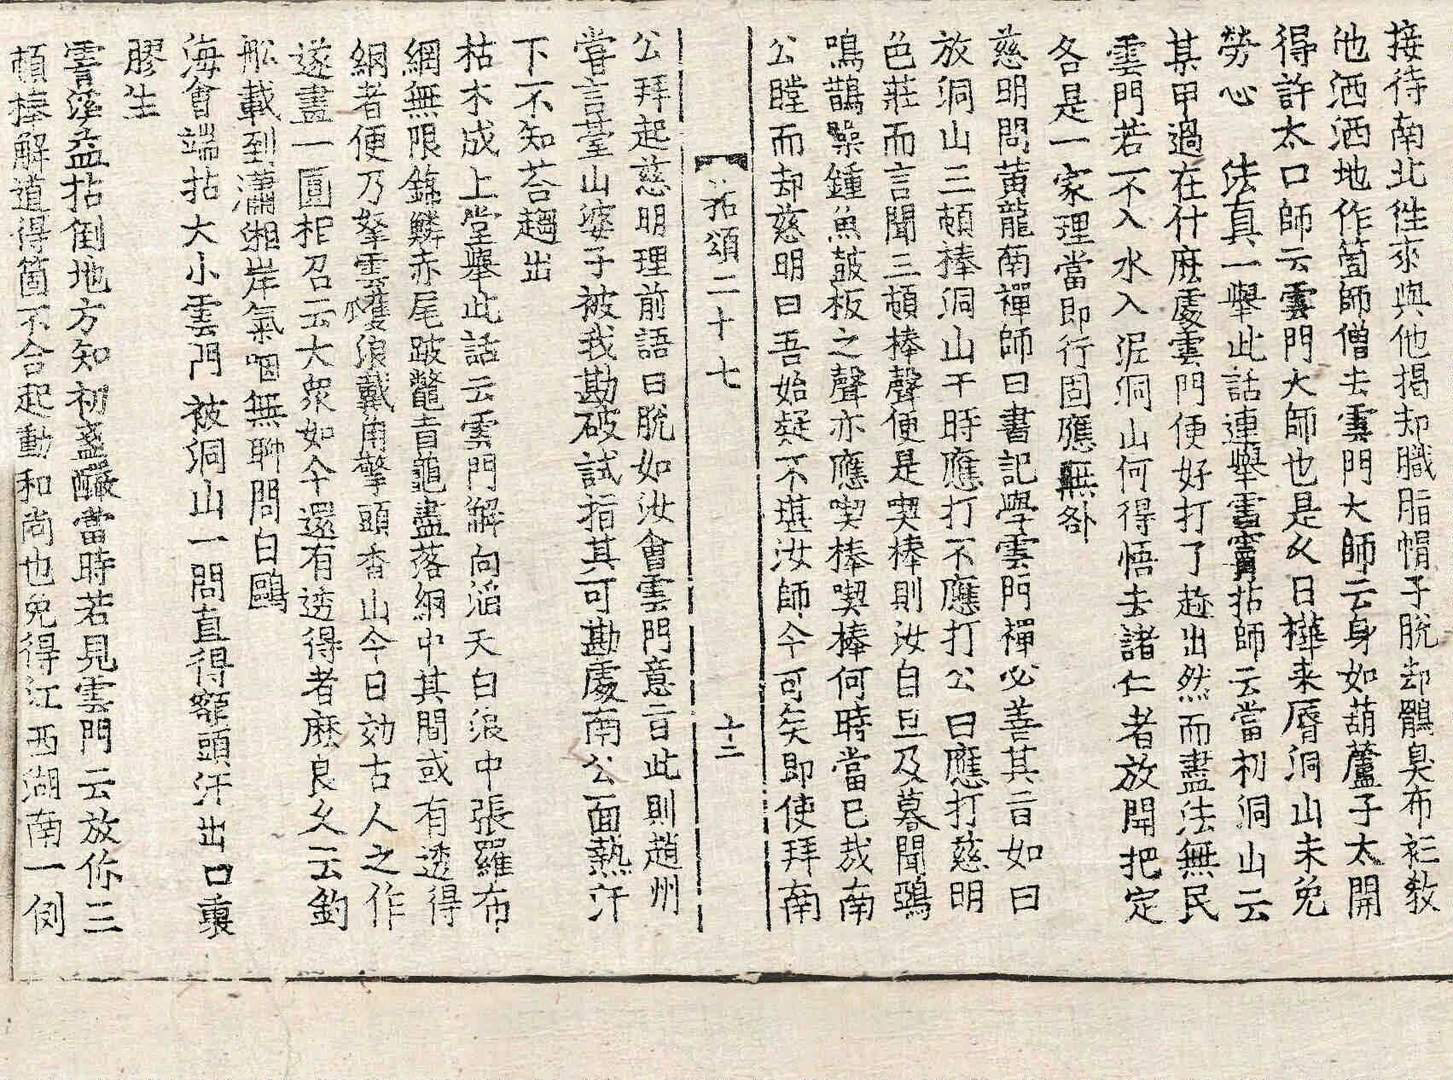 接待南北徃来與他揭却膱脂帽子脫却鶻臭布衫敎
他洒洒地作箇師僧去雲門大師云身如葫蘆子太開
得許太口師云雲門大師也是久日樺来辱洞山未免
勞心　法真一舉此話連舉雪竇拈師云當初洞山云
某甲過在什麽處雲門便好打了趂出然而盡法無民
雲門若不入水入泥洞山何得悟去諸仁者放開把定
各是一家理當即行固應無咎
慈明問黃龍南禪師曰書記學雲門禪必善其旨如曰
放洞山三頓棒洞山于時應打不應打公曰應打慈明
色莊而言聞三頓棒聲便是喫棒則汝自旦及暮聞鵶
鳴鵲噪鐘魚皷板之聲亦應喫棒喫棒何時當已㢤南
公瞠而却慈明曰吾始疑不堪汝師今可矣即使拜南
拈頌二十七　十二
公拜起慈明理前語曰脫如汝會雲門意旨此則趙州
甞言臺山婆子被我勘破試指其可勘處南公面熱汗
下不知荅趨出
枯木成上堂舉此話云雲門解向滔天白浪中張羅布
網無限錦鱗赤尾跛鼈盲龜盡落網中其間或有透得
網者便乃拏雲㸕浪戴角擎頭香山今日効古人之作
遂畫一圓相召云大衆如今還有透得者麽良久云釣
舩載到瀟湘岸氣咽無聊問白鷗
海會端拈大小雲門被洞山一問直得額頭汗出口裏
膠生
霅溪益拈倒地方知初盞釅當時若見雲門云放你三
頓棒解道得箇不合起動和尚也免得江西湖南一側